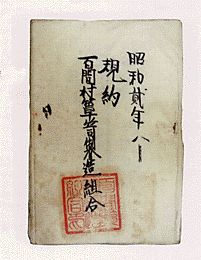 昭和貳年八
規約
百間村箪笥製造組合